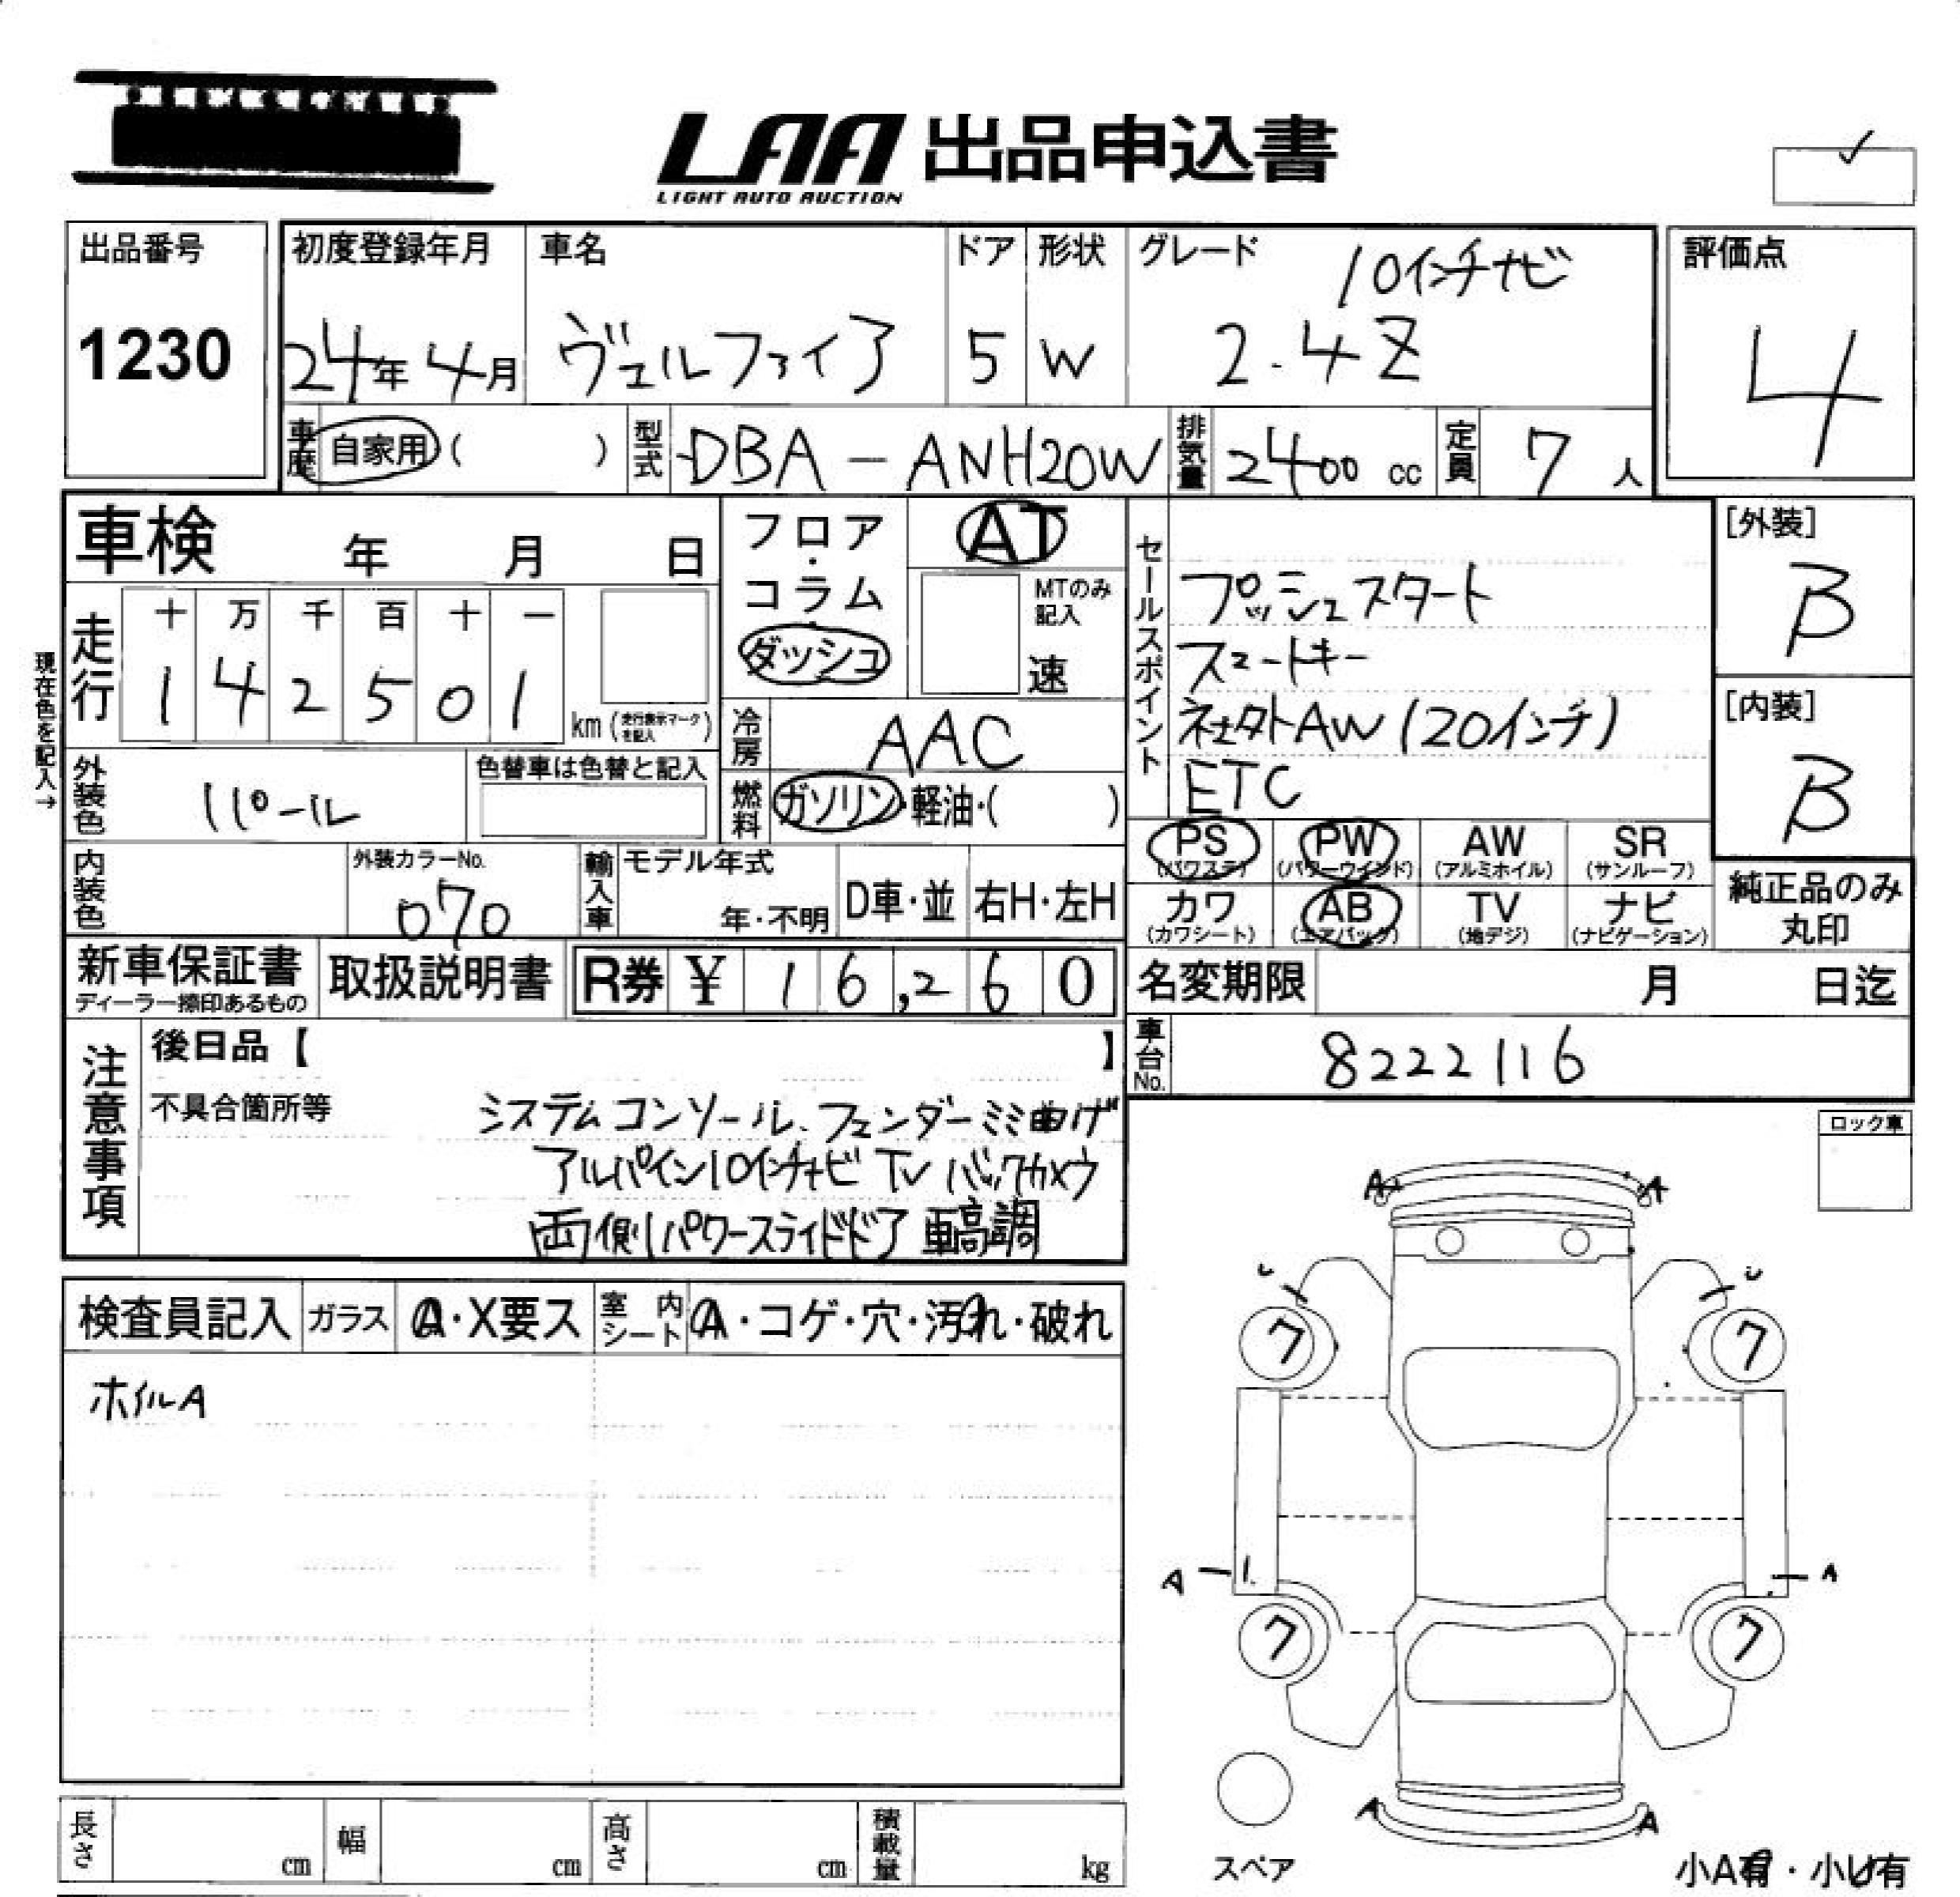 LAA 出品申込書
LIGHT AUTO AUCTION
出品番号
1230
初度登録年月
24年4月
車名
ヴェルファイア
ドア
5
形状
W
グレード
10インチナビ
2.4Z
評価点
4
車歴 自家用( )
型式 DBA-ANH20W
排気量 2400 cc
定員 7人
車検 年 月 日
走行
十 万 千 百 十 一
1 4 2 5 0 1
km(走行表示マークを記入)
現在色を記入→
フロア・コラム・ダッシュ
AT
MTのみ記入
速
冷房 AAC
燃料 ガソリン・軽油・( )
外装色 パール
色替車は色替と記入
内装色
外装カラーNo.
070
輸入車
モデル年式
年・不明
D車・並
右H・左H
セールスポイント
プッシュスタート
スマートキー
AW(20インチ)
ETC
[外装]
B
[内装]
B
PS(パワステ) PW(パワーウインド) AW(アルミホイル) SR(サンルーフ)
カワ(カワシート) AB(エアバック) TV(地デジ) ナビ(ナビゲーション)
純正品のみ丸印
新車保証書
ディーラー捺印あるもの
取扱説明書
R券 ¥ 16,260
名変期限 月 日迄
車台No. 8222116
注意事項
後日品【 】
不具合箇所等
システムコンソール、フェンダーミミ曲げ
アルパイン10インチナビ TV バックカメラ
両側パワースライドドア 車高調
検査員記入
ガラス A・X要ス
室内シート A・コゲ・穴・汚れ・破れ
ホイルA
ロック車
A A
U U
7 7
A A
7 7
A A
スペア
小A有・小U有
長さ cm
幅 cm
高さ cm
積載量 kg